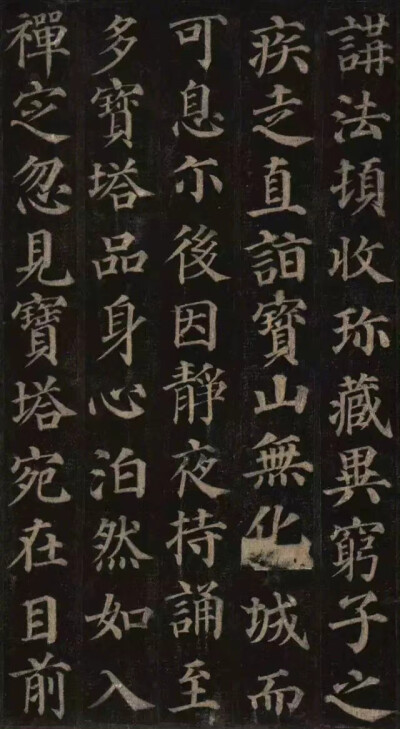 講法頓收珎藏異窮子之
疾走直詣寶山無化城而
可息尒後因静夜持誦至
多寶塔品身心泊然如入
禪定忽見寶塔宛在目前